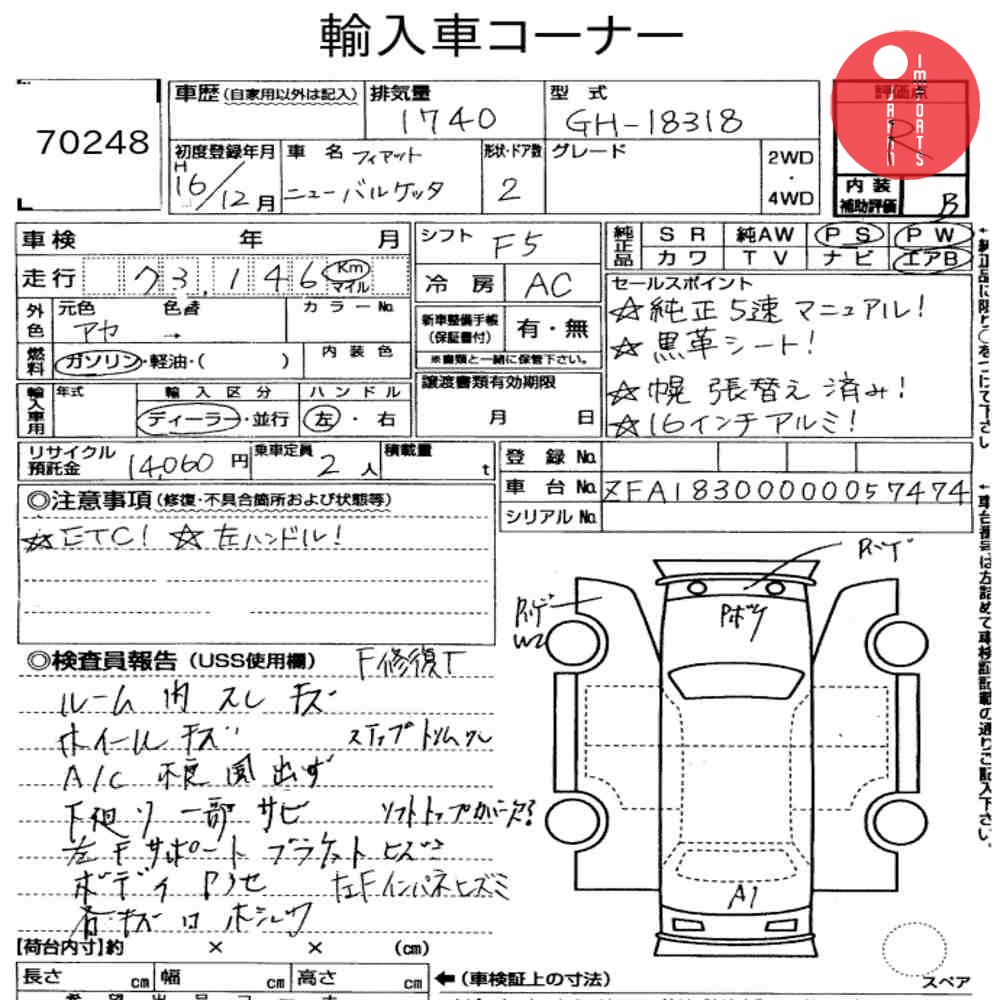 輸入車コーナー
JAPAN IMPORTS
70248
車歴 (自家用以外は記入) 排気量 型式 評価点
1740 GH-18318 R
初度登録年月 車名 フィアット 形状・ドア数 グレード 2WD・4WD
H16/12月 ニューバルケッタ 2
内装補助評価 B
車検 年 月 シフト F5 純正品 SR 純AW PS PW
カワ TV ナビ エアB
走行 73,146 Km マイル 冷房 AC
セールスポイント
☆純正5速マニュアル!
☆黒革シート!
☆幌 張替え済み!
☆16インチアルミ!
外色 元色 色替 カラーNo.
アヤ →
新車整備手帳(保証書付) 有・無
※書類と一緒に保管下さい。
燃料 ガソリン・軽油・( ) 内装色
譲渡書類有効期限
月 日
輸入車用 年式 輸入区分 ハンドル
ディーラー・並行 左・右
リサイクル預託金 14,060円 乗車定員 2人 積載量 t
登録No.
車台No. ZFA18300000057474
シリアルNo.
◎注意事項(修復・不具合箇所および状態等)
☆ETC! ☆左ハンドル!
◎検査員報告(USS使用欄) F修復T
ルーム内スレキズ
ホイールキズ ステップトリムワレ
A/C 不良 風出ず
下廻り一部サビ ソフトトップカバー欠
左Fサポートブラケットヒズミ
ボディ 左Fインパネヒズミ
Pボク
W2
A1
スペア
【荷台内寸】約 × × (cm)
長さ cm 幅 cm 高さ cm ←(車検証上の寸法)
←車台番号は左詰めで車検証記載の通りご記入下さい。